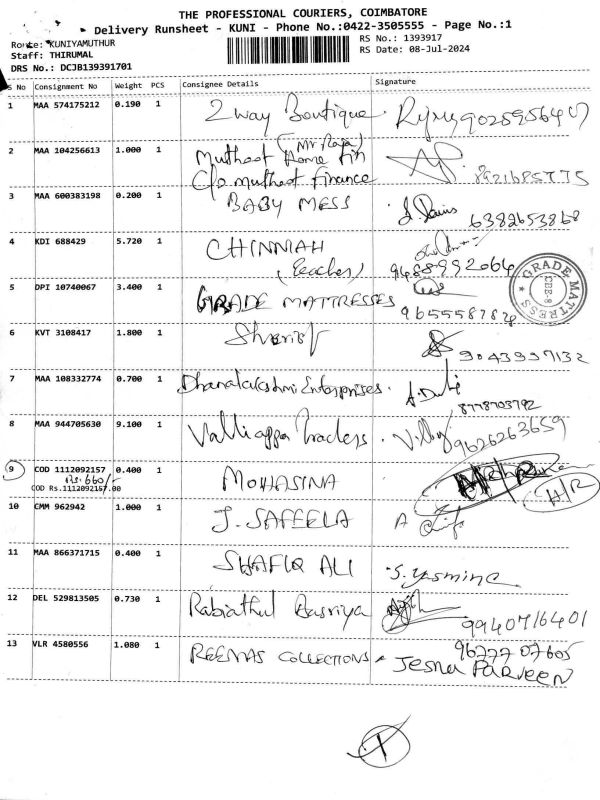 THE PROFESSIONAL COURIERS, COIMBATORE
Delivery Runsheet - KUNI - Phone No.:0422-3505555 - Page No.:1
Route: KUNIYAMUTHUR RS No.: 1393917
Staff: THIRUMAL RS Date: 08-Jul-2024
DRS No.: DCJB139391701
S No Consignment No Weight PCS Consignee Details Signature
1 MAA 574175212 0.190 1 2way Boutique
2 MAA 104256613 1.000 1 (Mr Raja)
Muthoot Home Fin 8921685775
C/o muthoot finance
3 MAA 600383198 0.200 1 BABY MESS 6382653868
4 KDI 688429 5.720 1 CHINNIAH
(Teacher) 9488992064
5 DPI 10740067 3.400 1 GRADE MATTRESSES GRADE MATTRESS
6 KVT 3108417 1.800 1 Sherief 9043997132
7 MAA 108332774 0.700 1 Dhanalakshmi Enterprises.
8778703792
8 MAA 944705630 9.100 1 Valliappa Traders. 9626263659
9 COD 1112092157 0.400 1 MOHASINA H/R
Rs.660/-
COD Rs.1112092157.00
10 CMM 962942 1.000 1 J. SAFEELA A
11 MAA 866371715 0.400 1 SHAFIQ ALI S. Yasmine
12 DEL 529813505 0.730 1 Rabiathul Basriya 9940716401
13 VLR 4580556 1.080 1 REEMAS COLLECTIONS 9677707605
Jesna PARVEEN